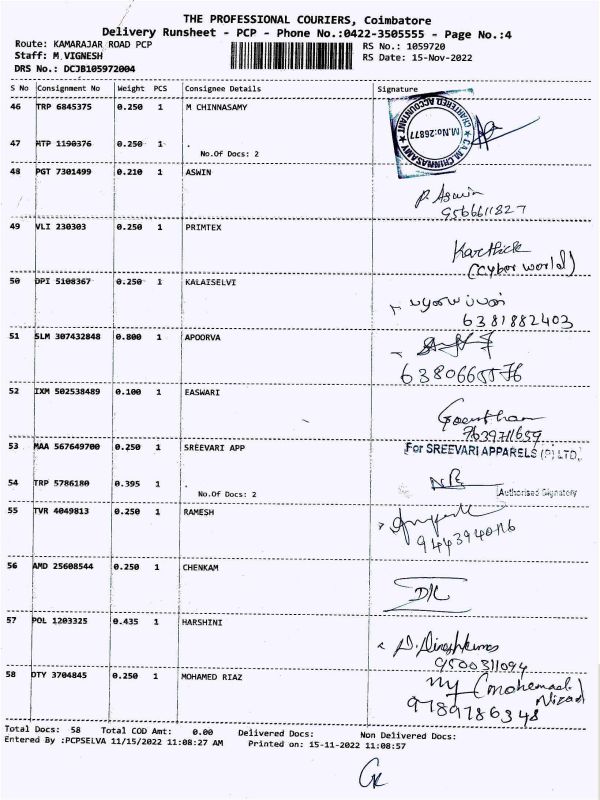 THE PROFESSIONAL COURIERS, Coimbatore
Delivery Runsheet - PCP - Phone No.:0422-3505555 - Page No.:4
Route: KAMARAJAR ROAD PCP
RS No.: 1059720
Staff: M VIGNESH
RS Date: 15-Nov-2022
DRS No.: DCJB105972004
S No Consignment No Weight PCS Consignee Details Signature
46 TRP 6845375 0.250 1 M CHINNASAMY
CHARTERED ACCOUNTANT ★ CA.M.CHINNASAMY ★
M.No:26677
47 MTP 1190376 0.250 1 .
No.Of Docs: 2
48 PGT 7301499 0.210 1 ASWIN
P. Aswin
9566611827
49 VLI 230303 0.250 1 PRIMTEX
Karthick
(Cyber world)
50 DPI 5108367 0.250 1 KALAISELVI
6381882403
51 SLM 307432848 0.800 1 APOORVA
6380665576
52 IXM 502538489 0.100 1 EASWARI
Gowtham
7639711659
53 MAA 567649700 0.250 1 SREEVARI APP
For SREEVARI APPARELS (P) LTD.,
54 TRP 5786180 0.395 1 .
No.Of Docs: 2
Authorised Signatory
55 TVR 4049813 0.250 1 RAMESH
56 AMD 25608544 0.250 1 CHENKAM
57 POL 1203325 0.435 1 HARSHINI
D. Dineshkumar
9500311094
58 DTY 3704845 0.250 1 MOHAMED RIAZ
9789786348
Total Docs: 58 Total COD Amt: 0.00 Delivered Docs: Non Delivered Docs:
Entered By :PCPSELVA 11/15/2022 11:08:27 AM Printed on: 15-11-2022 11:08:57